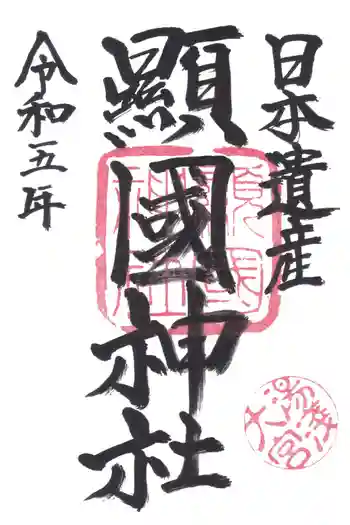 日本遺産
顯國神社
令和五年
顯國神社
湯淺大宮